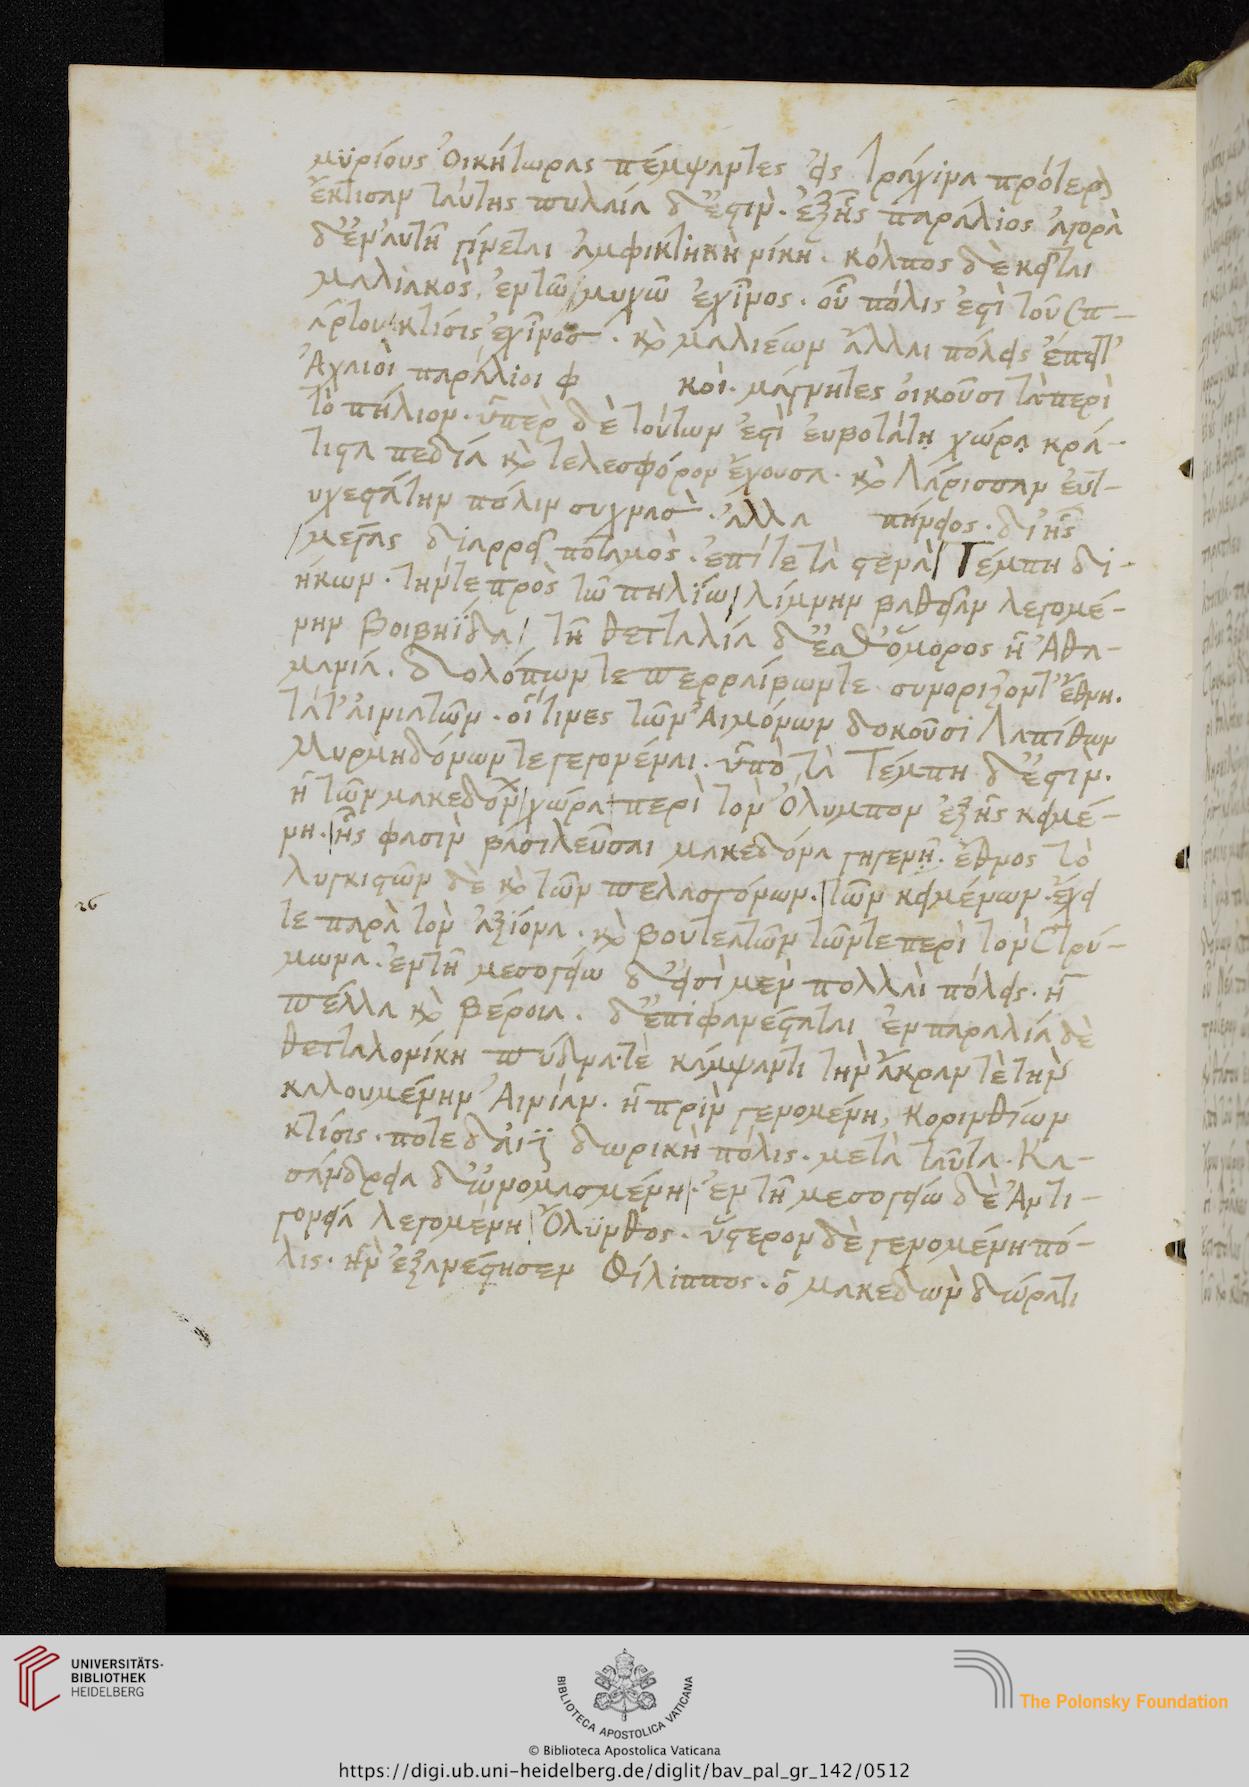 μϋρίους οἰκήτωρας πέμψαντες εἰς Τράχινα πρότερὸ
ἔκτισαν ταύτης πυλαία δ᾽ἐστὶν. ἑξῆς παράλιος ἀγορὰ
δ᾽ ἐν αὐτῆ γίνεται ἀμφικτηκὴ νίκη. κόλπος δὲ κεῖται
μαλιακὸς, ἐν τῶ μυχῶ ἐχῖνος. οὗ πόλις ἐστὶ τοῦ Σπ-
άρτου κτίσις ἐχῖνοσ. καὶ μαλιέων ἄλλαι πόλεις ἑπτ᾽
Ἀχαιοὶ παράλιοι φ κοὶ. μάγνητες οἰκοῦσι τὰ περὶ
τὸ πήλιον. ὑπὲρ δὲ τούτων ἐστὶ εὐβοτάτη χώρα κρά-
τιστα πεδία καὶ τελεσφόρον ἔχουσα. καὶ Λάρισσαν εὐτ-
υχεστάτην πόλιν συχνασ. ἄλλα πήνειος. δι᾽ ἧς
μέγας διαρρεῖ ποταμὸς. ἐπί τε τὰ στενὰ Τέμπη δι-
ήκων. τήν τε πρὸς τῶ πηλίω λίμνην βαθεῖαν λεγομέ-
νην βοιβηΐδα τῆ θετταλία δ᾽ ὅμορος ἡ Ἀθα-
μανία. δολόπων τε περραίβων τε συνορίζοντ᾽ ἔθνη.
τά τ᾽ αἰνιατῶν. οἵτινες τῶν Αἱμόνων δοκοῦσι Λαπίθων
Μυρμηδόνων τε γεγονέναι. ὑπὸ τὰ Τέμπη δ᾽ἐστὶν.
ἡ τῶν μακεδόν χώρα περὶ τὸν Ὄλυμπον ἑξῆς κειμέ-
νη. ἧς φασὶν βασιλεῦσαι μακεδόνα γηγενῆ. ἔθνος τὸ
λυγκιστῶν δὲ καὶ τῶν πελαγόνων. τῶν κειμένων. ἔχει
26
τε παρὰ τὸν ἀξιόνα. καὶ βουτεατῶν τῶν τε περὶ τὸν Στρύ-
μωνα. ἐν τῆ μεσογείω δ᾽ εἰσὶ μὲν πολλαὶ πόλεις. ἡ
πέλλα καὶ βέροια. δ᾽ἐπιφανέσταται ἐν παραλία δὲ
θετταλονίκη πύδνα τὲ κάμψαντι τὴν ἄκραν τὲ τὴν
καλουμένην Αἰνίαν. ἡ πρὶν γενομένη, κορινθίων
κτίσις. ποτεδαιξ δωρικὴ πόλις. μετὰ ταῦτα. Κα-
σάνδρεια δ᾽ ὠνομασμένη. ἐν τῆ μεσογείω δὲ Ἀντι-
γονεία λεγομένη Ὄλϋνθος. ὕστερον δὲ γενομένη πό-
λις. ἣν ἐξανέστησεν Φίλιππος. ὁ μακεδὼν δώρατι
UNIVERSITÄTS-
BIBLIOTHEK
HEIDELBERG
BIBLIOTECA APOSTOLICA VATICANA
The Polonsky Foundation
© Biblioteca Apostolica Vaticana
https://digi.ub.uni-heidelberg.de/diglit/bav_pal_gr_142/0512